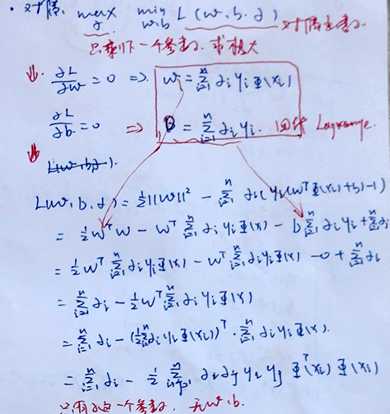 · 对偶. max_α min_{w.b} L(w.b.α) 对偶
只剩下一个参数. 求极大
∂L/∂w = 0 => w = Σ_{i=1}^n α_i y_i Φ(x_i)
∂L/∂b = 0 => 0 = Σ_{i=1}^n α_i y_i. 回代 Lagrange.
L(w.b.α).
L(w.b.α) = ½||w||² - Σ_{i=1}^n α_i (y_i(w^T Φ(x_i)+b)-1)
= ½w^T w - w^T Σ_{i=1}^n α_i y_i Φ(x) - b Σ_{i=1}^n α_i y_i + Σ_{i=1}^n α_i
= ½w^T Σ_{i=1}^n α_i y_i Φ(x) - w^T Σ_{i=1}^n α_i y_i Φ(x) - 0 + Σ_{i=1}^n α_i
= Σ_{i=1}^n α_i - ½w^T Σ_{i=1}^n α_i y_i Φ(x)
= Σ_{i=1}^n α_i - ½(Σ_{i=1}^n α_i y_i Φ(x_i))^T · Σ_{i=1}^n α_i y_i Φ(x).
= Σ_{i=1}^n α_i - ½ Σ_{i,j=1}^n α_i α_j y_i y_j Φ^T(x_i) Φ(x_j)
只有α这一个参数. 无w.b.